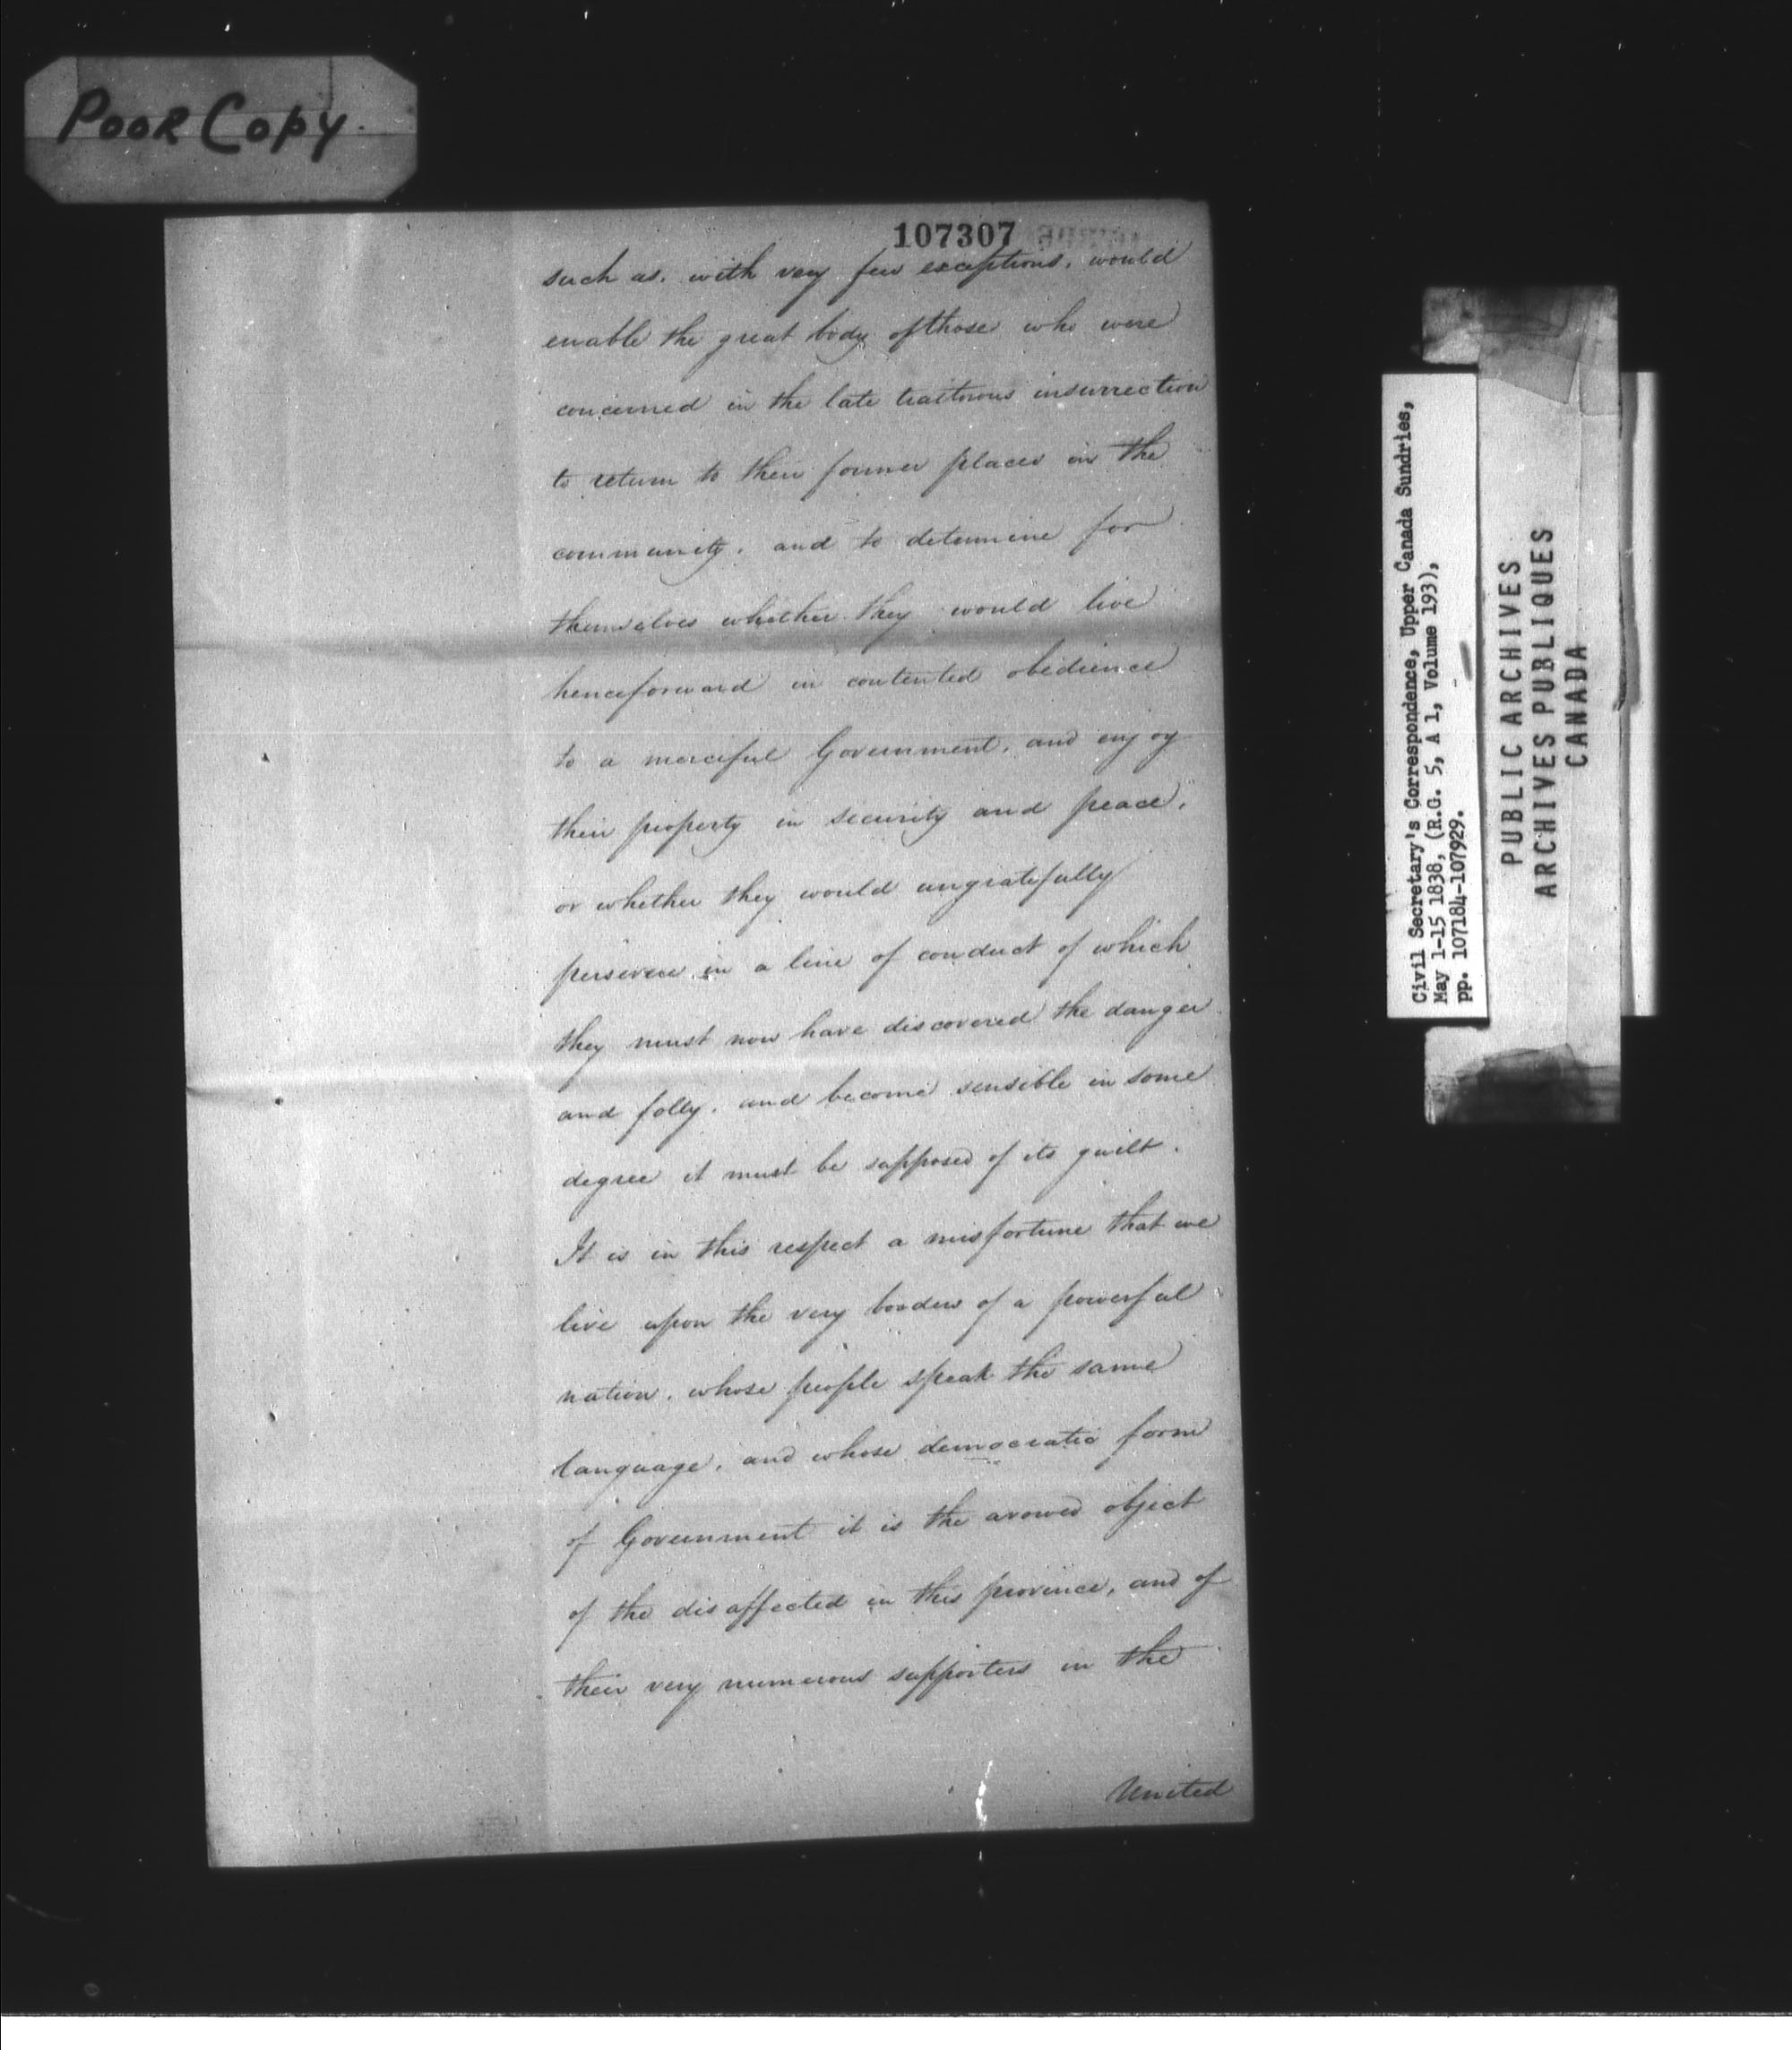 Poor Copy.
107307
such as, with very few exceptions, would
enable the great body of those who were
concerned in the late traitorous insurrection
to return to their former places in the
community, and to determine for
themselves whether they would live
henceforward in contented obedience
to a merciful Government, and enjoy
their property in security and peace,
or whether they would ungratefully
persevere in a line of conduct of which
they must now have discovered the danger
and folly, and become sensible in some
degree it must be supposed of its guilt.
It is in this respect a misfortune that we
live upon the very borders of a powerful
nation, whose people speak the same
language, and whose democratic form
of Government it is the avowed object
of the disaffected in this province, and of
their very numerous supporters in the
United
Civil Secretary's Correspondence, Upper Canada Sundries,
May 1-15 1838, (R.G. 5, A 1, Volume 193),
pp. 107184-107929.
PUBLIC ARCHIVES
ARCHIVES PUBLIQUES
CANADA